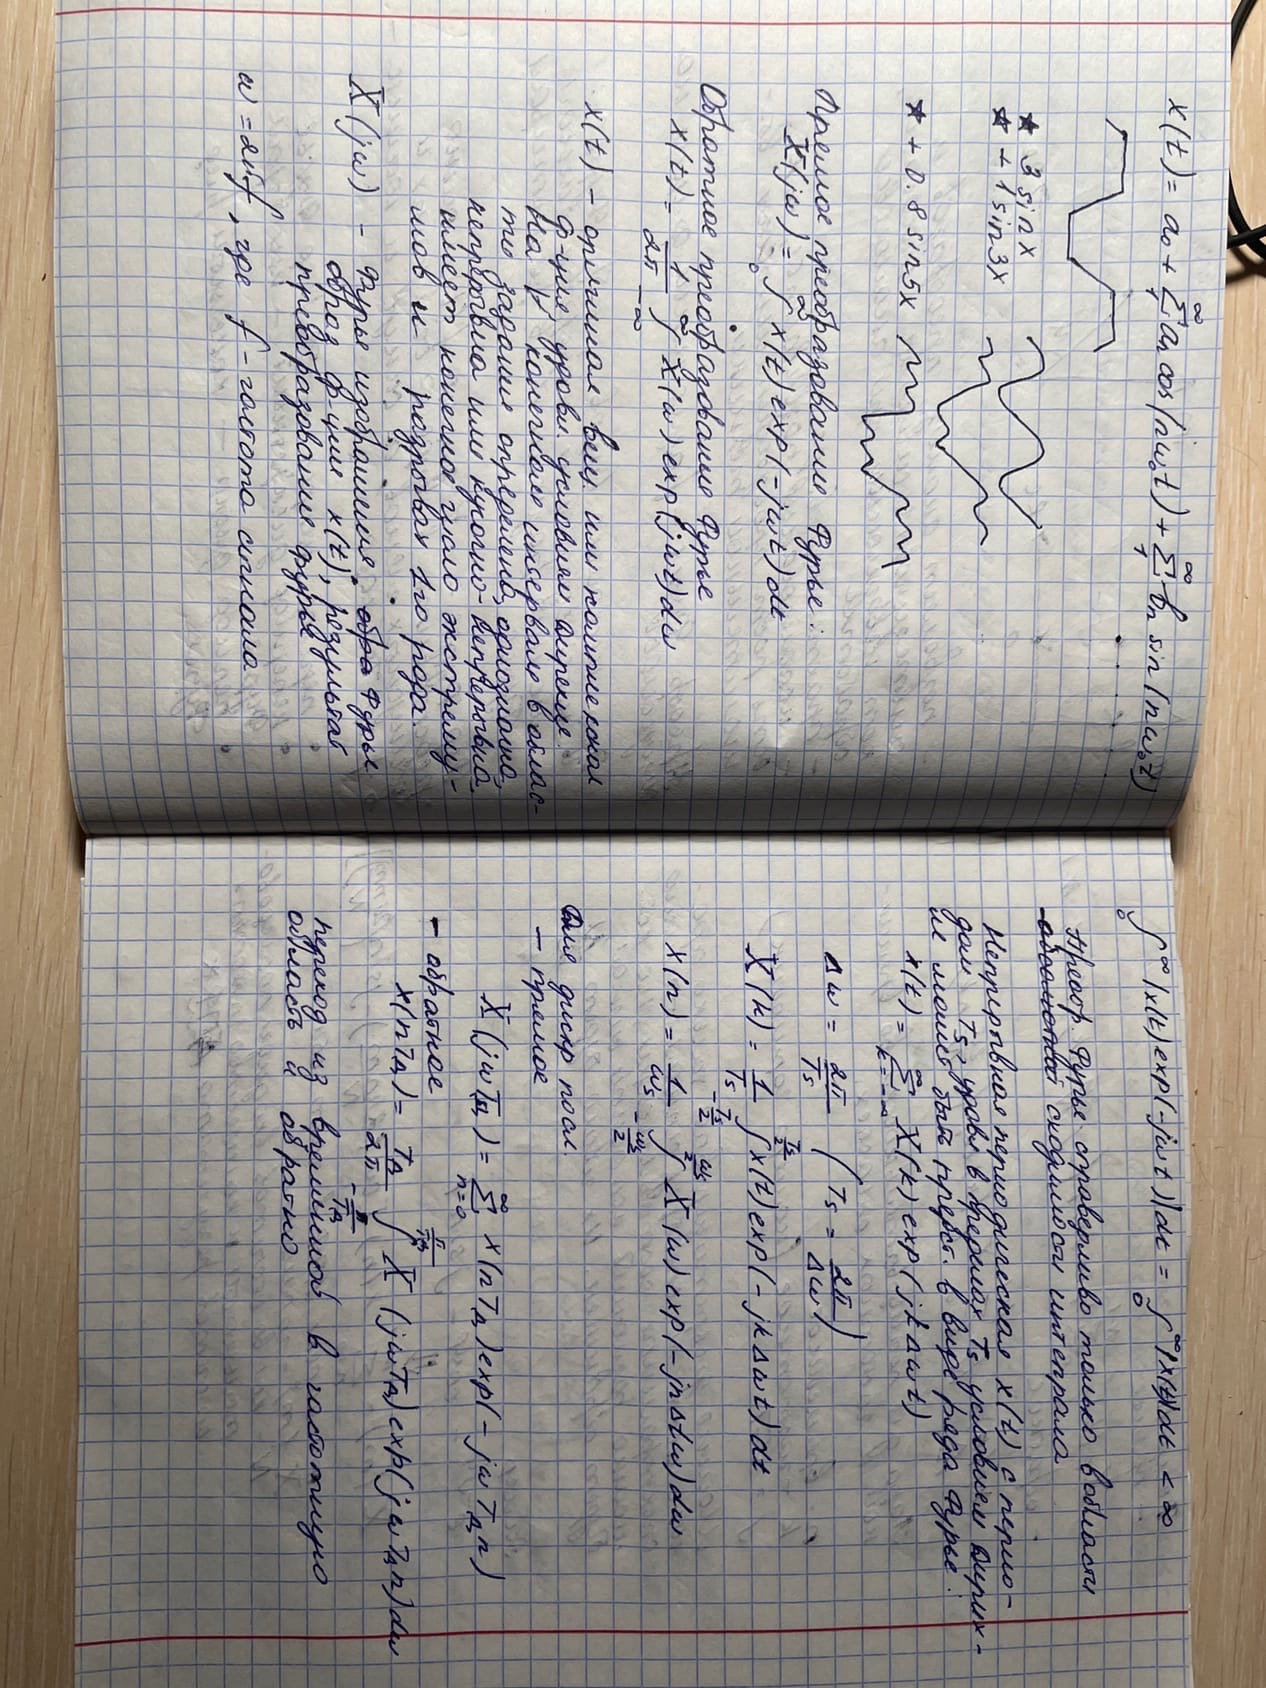 x(t) = a₀ + ∑₁^∞ aₙ cos(nω₀t) + ∑₁^∞ bₙ sin(nω₀t)
★ 3 sin x
★ + 1 sin 3x
★ + 0.8 sin 5x
Прямое преобразование Фурье:
X(jω) = ∫₀^∞ x(t) exp(-jωt) dt
Обратное преобразование Фурье
x(t) = 1/2π ∫_{-∞}^∞ X(ω) exp(jωt) dω
x(t) – оригинал вещ. или комплексная
ф-ция, удовл. условием Дирехле.
На ∀ конечном интервале в облас-
ти задания определена, однозначна,
непрерывна или кусочно-непрерывна,
имеет конечное число экстрему-
мов и разрывах 1го рода.
X(jω) – Фурье изображение, обра Фурье
образ ф-ции x(t), результат
преобразование фурье
ω = 2πf, где f – частота сигнала
∫₀^∞ |x(t) exp(-jωt)| dt = ∫₀^∞ |x(t)| dt < ∞
Преобр. Фурье справедливо только в области
абсолютной сходимости интеграла
Непрерывная периодическая x(t) с перио-
дом Ts, удовл в пределах Ts условием Дирих-
ле может быть предст. в виде ряда Фурье:
x(t) = ∑_{k=-∞}^∞ X(k) exp(jkΔωt)
Δω = 2π/Ts (Ts = 2π/Δω)
X(k) = 1/Ts ∫_{-Ts/2}^{Ts/2} x(t) exp(-jkΔωt) dt
x(n) = 1/ωs ∫_{-ωs/2}^{ωs/2} X(ω) exp(-jnΔtω) dω
Для дискр посл.
– прямое
X(jωTд) = ∑_{n=0}^∞ x(nTд) exp(-jωTдn)
– обратное
x(nTд) = Tд/2π ∫_{-π/Tд}^{π/Tд} X(jωTд) exp(jωTдn) dω
переход из временной в частотную
область и обратно